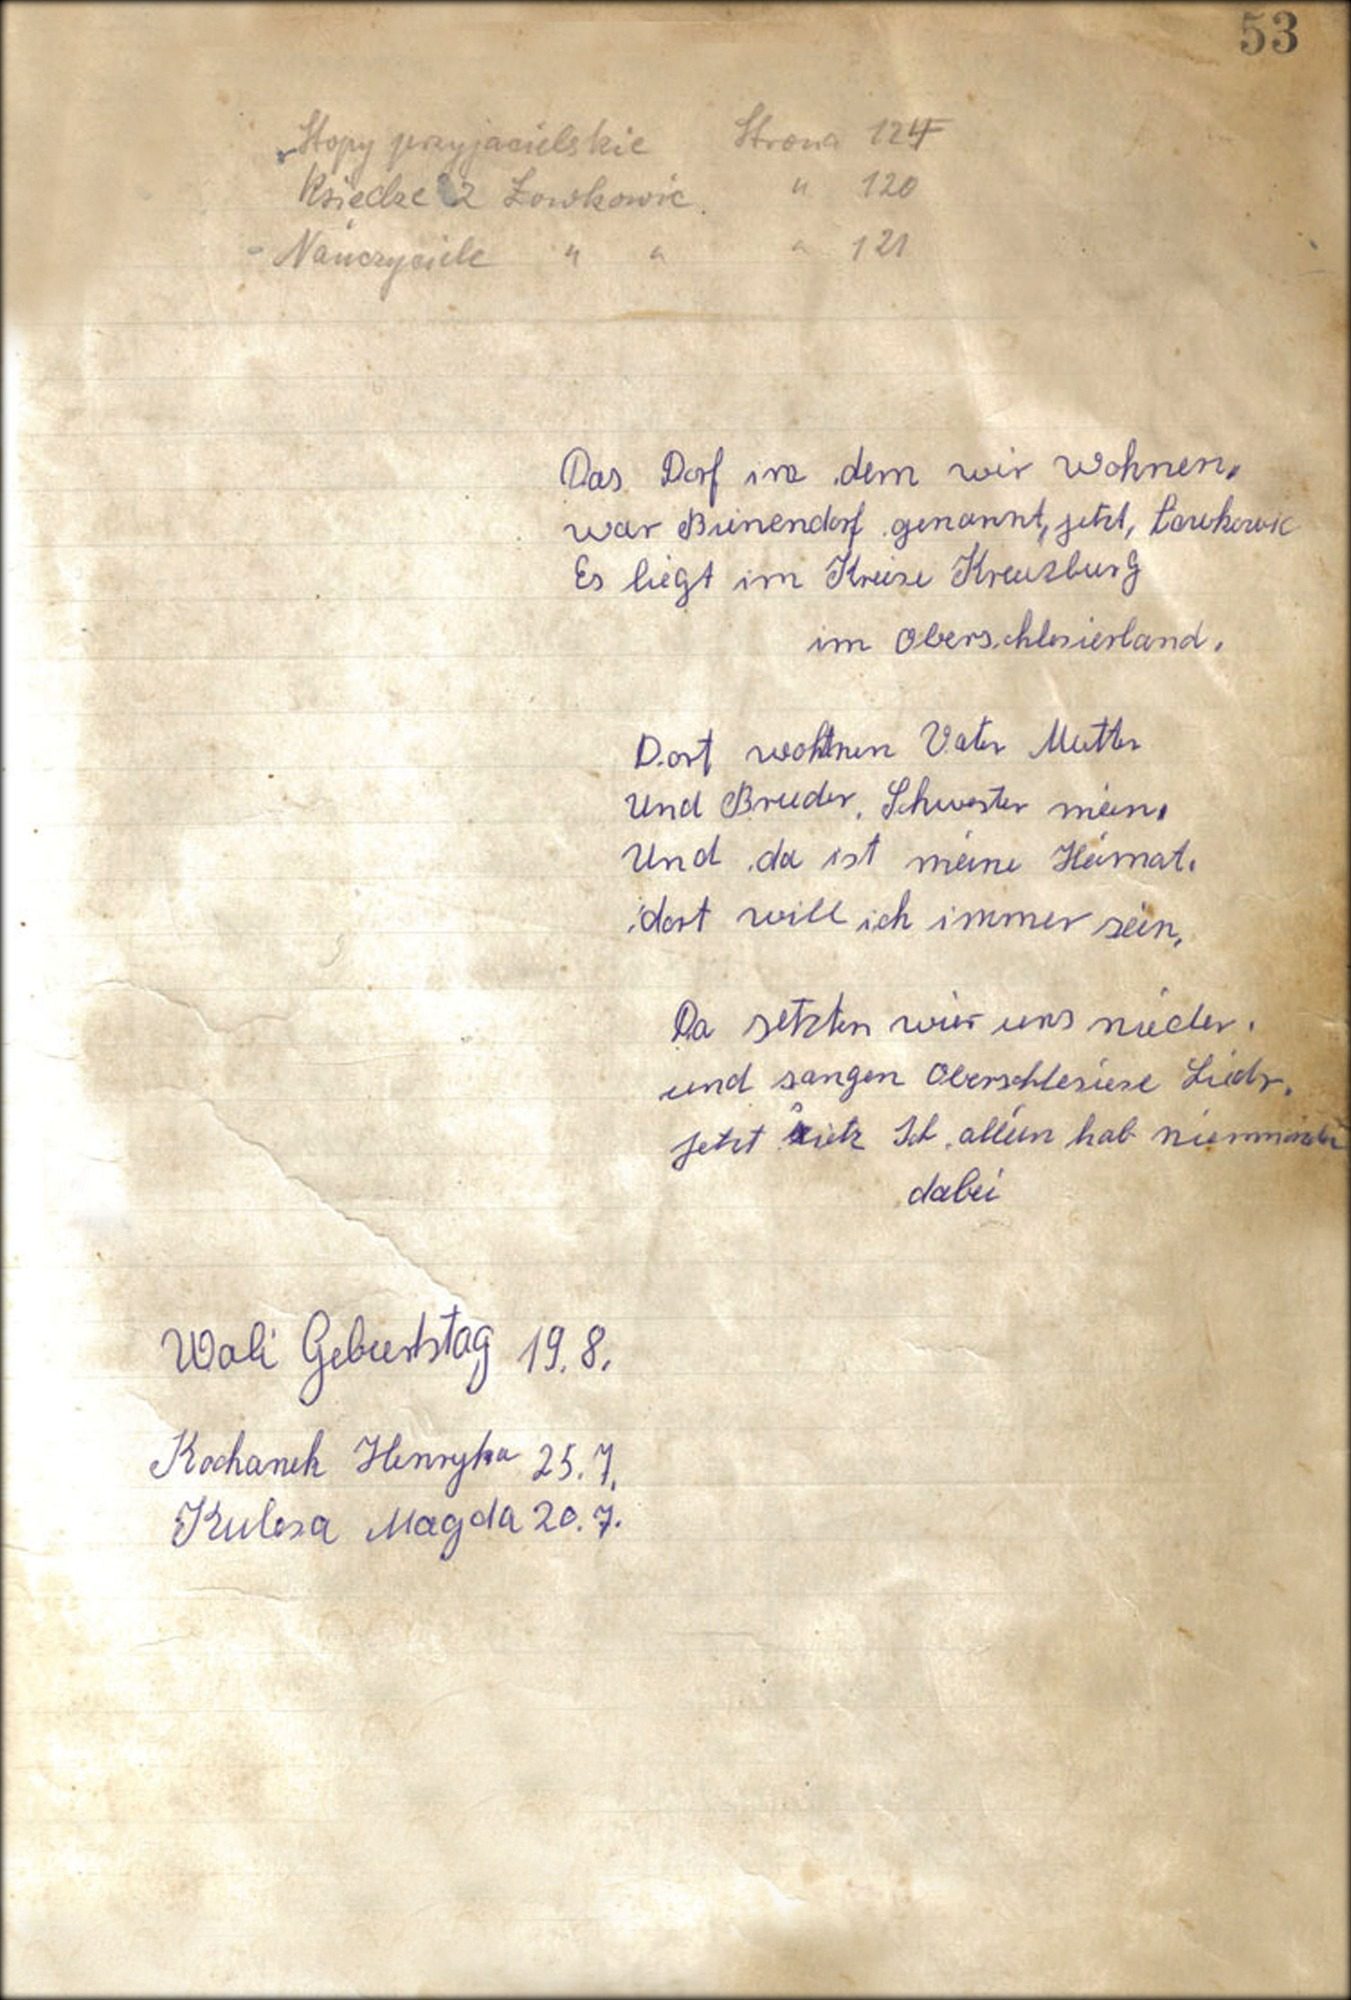 53
Stopy przyjacielskie Strona 124
Księdze z Łowkowic " 120
- Nauczyciele " " " 121
Das Dorf in dem wir wohnen,
war Bienendorf genannt, jetzt, Łowkowic
Es liegt im Kreise Kreuzburg
im Oberschlesierland.
Dort wohnen Vater Mutter
Und Bruder, Schwester mein,
Und da ist meine Heimat.
dort will ich immer sein,
Da setzten wier uns nieder.
und sangen Oberschlesiese Lieder.
jetzt Ich allein hab
dabei
Wali Geburtstag 19. 8.
Kochanek Henryka 25. 7.
Kulesa Magda 20. 7.